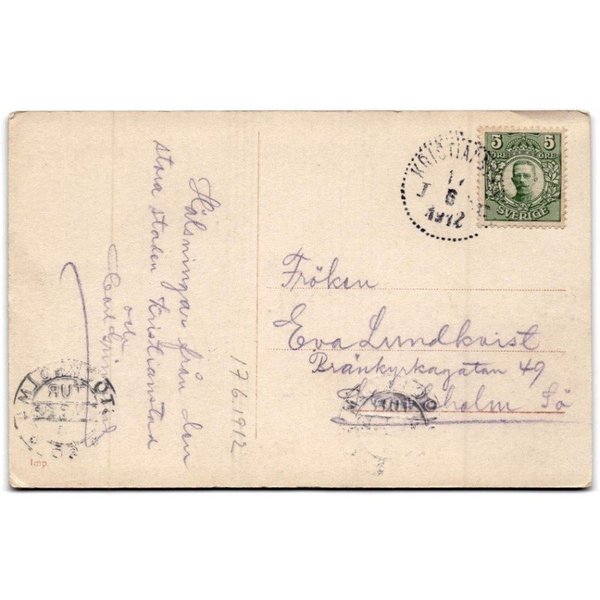 Hälsningar från den
stora staden Kristianstad
och
17/6 1912
KRISTIANSTAD
17
6
1912
5 5
ÖRE ÖRE
SVERIGE
Fröken
Eva Lundkvist
Bränkyrkagatan 49
Stockholm Sö
TUR
Imp.